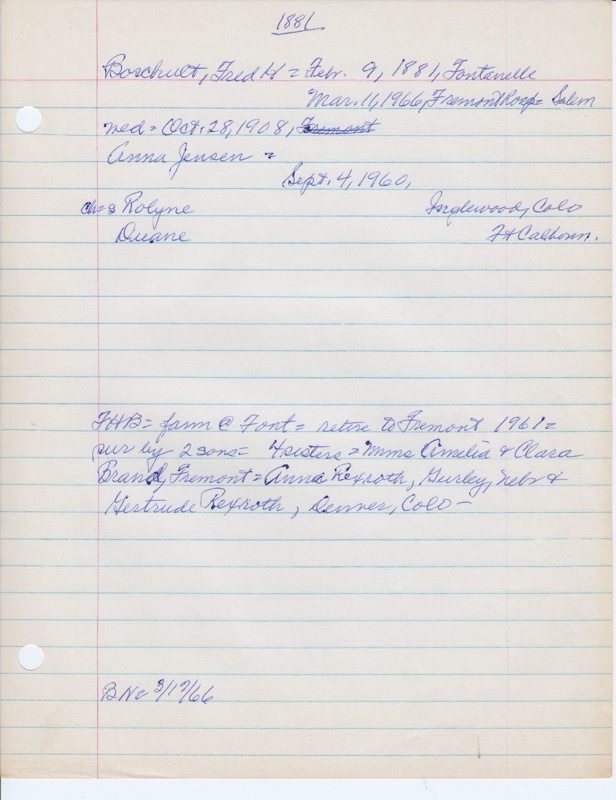 1881
Boschult, Fred H = Febr. 9, 1881, Fontanelle
Mar. 11, 1966, Fremont Hosp = Salem
wed = Oct. 28, 1908, Fremont
Anna Jensen =
Sept. 4, 1960,
Rolyne Inglewood, Colo
Duane Ft Calhoun.
FHB = farm @ Font = retire to Fremont 1961 =
sur by 2 sons = 4 sisters = Mmes Amelia & Clara
Brand, Fremont = Anna Rexroth, Gurley, Nebr &
Gertrude Rexroth, Denver, Colo –